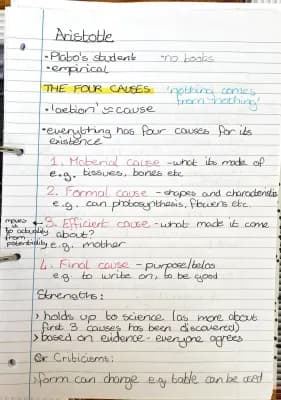 Aristotle
• Plato's student 'no books
• empirical
THE FOUR CAUSES: 'nothing comes
from nothing'
• 'aetion' ≈ cause
• everything has four causes for its
existence
1. Material cause - what its made of
e.g. tissues, bones etc
2. Formal cause - shapes and characteristics
e.g. can photosynthesis, flowers etc.
moves to actuality from potentiality ← 3. Efficient cause - what made it come
about?
e.g. mother
4. Final cause - purpose/telos
e.g. to write on, to be good
Strengths:
> holds up to science (as more about
first 3 causes has been discovered)
> based on evidence - everyone agrees
Or Criticisms:
> form can change e.g table can be used